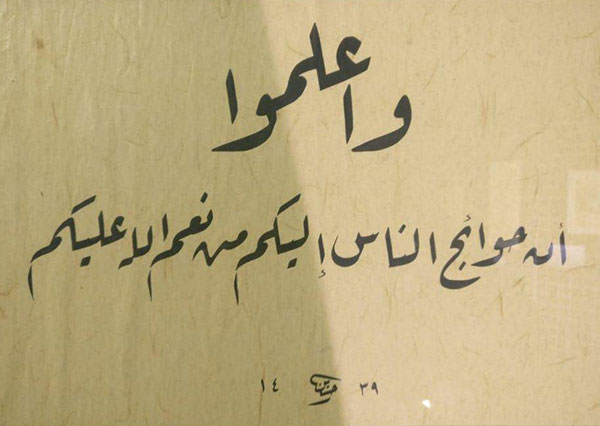 واعلموا
أن حوائج الناس إليكم من نعم الله عليكم
١٤ ٣٩